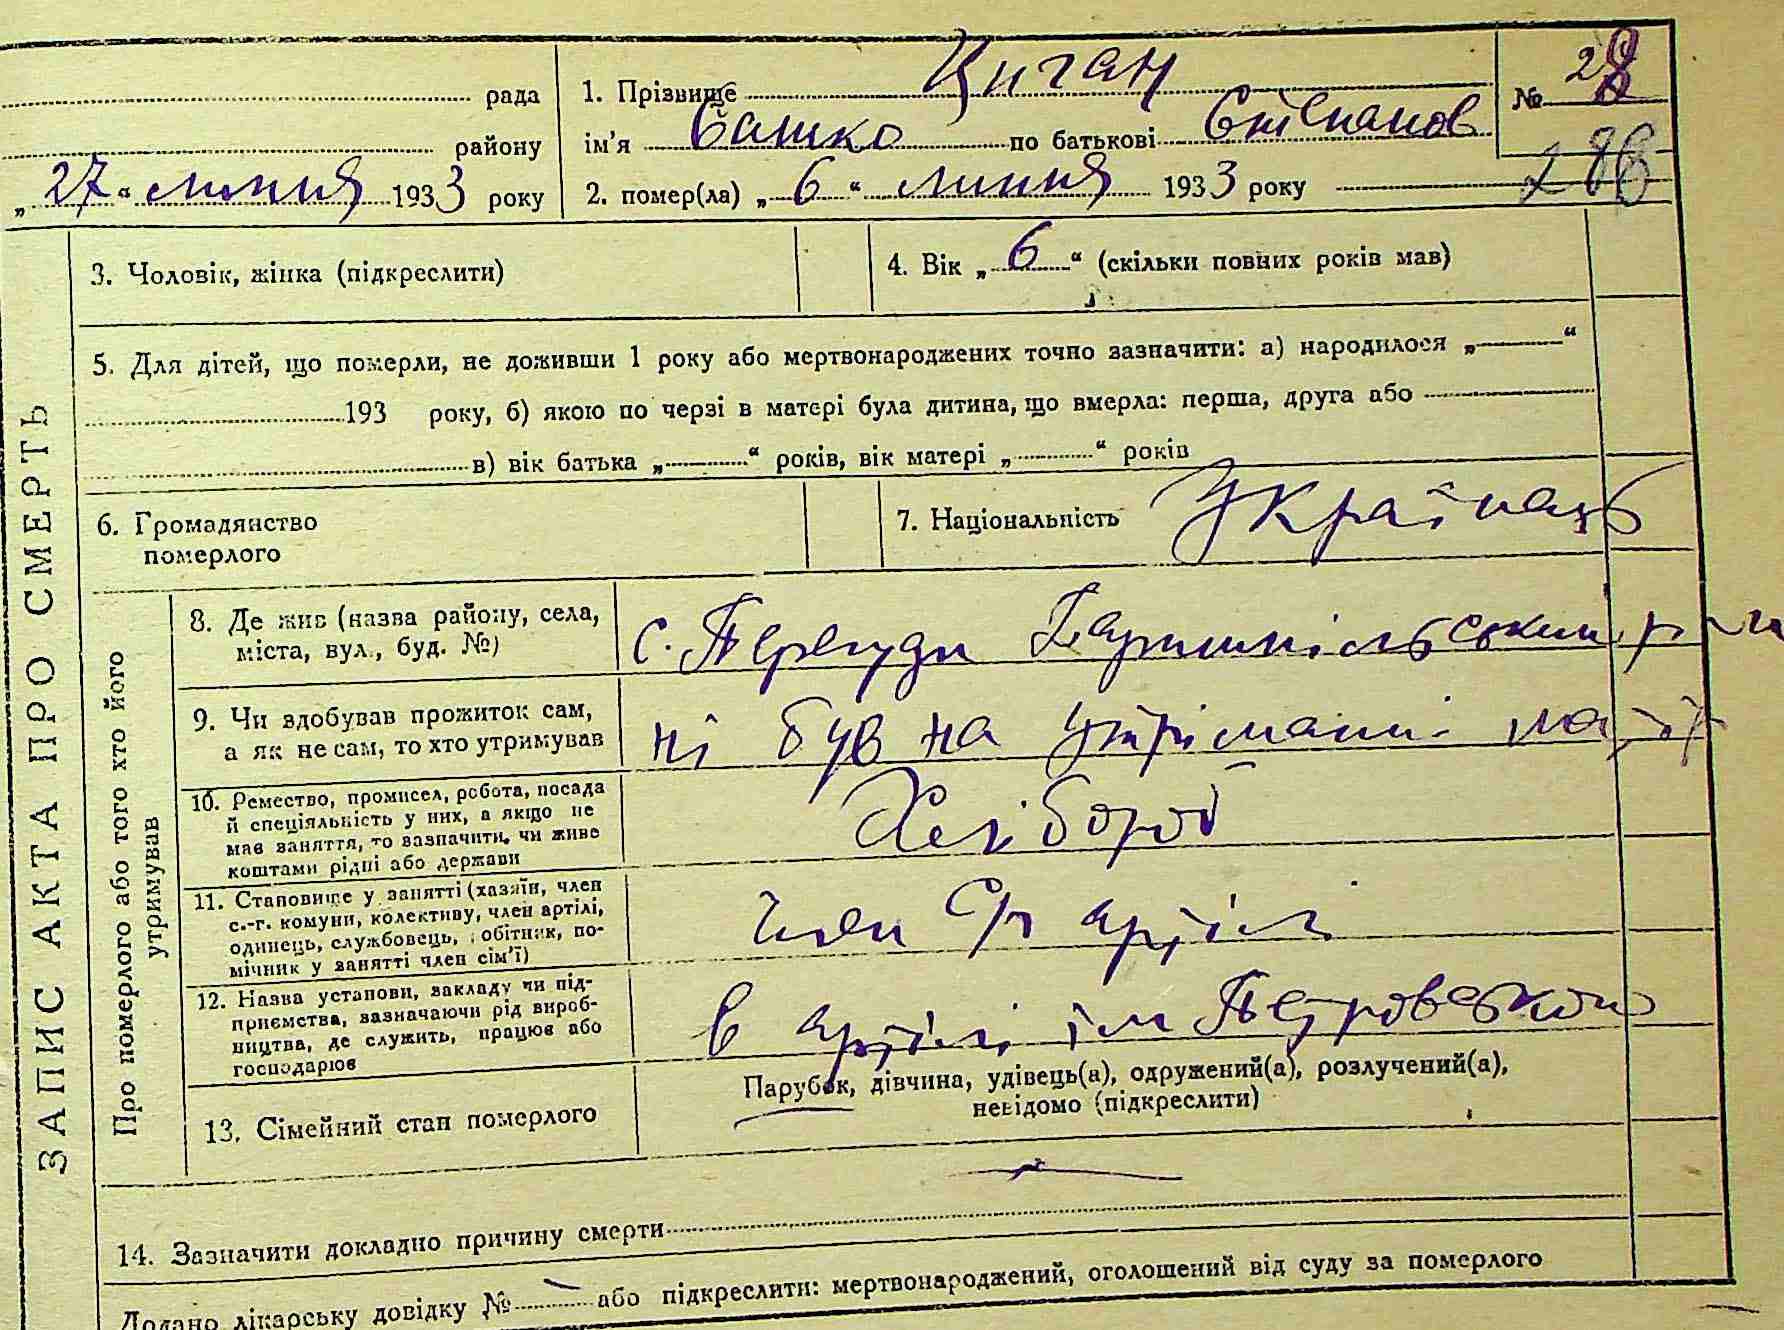 рада
району
„27“ липня 1933 року
1. Прізвище Циган
ім'я Сашко по батькові Степанов
2. помер(ла) „6“ липня 1933 року
№ 28
ЗАПИС АКТА ПРО СМЕРТЬ
3. Чоловік, жінка (підкреслити)
4. Вік „6“ (скільки повних років мав)
5. Для дітей, що померли, не доживши 1 року або мертвонароджених точно зазначити: а) народилося „ “
193 року, б) якою по черзі в матері була дитина, що вмерла: перша, друга або
в) вік батька „ “ років, вік матері „ “ років
6. Громадянство
померлого
7. Національність Українець
Про померлого або того хто його
утримував
8. Де жив (назва району, села,
міста, вул., буд. №)
с. Перегуди
9. Чи здобував прожиток сам,
а як не сам, то хто утримував
ні був на утриманні
10. Ремество, промисел, робота, посада
й спеціяльність у них, а якщо не
мав заняття, то зазначити, чи живе
коштами рідні або держави
Хлібороб
11. Становище у занятті (хазяїн, член
с.-г. комуни, колективу, член артілі,
одинець, службовець, робітник, по-
мічник у занятті член сім'ї)
член с/г артілі
12. Назва установи, закладу чи під-
приємства, зазначаючи рід вироб-
ництва, де служить, працює або
господарює
в артілі ім Петровского
13. Сімейний стан померлого
Парубок, дівчина, удівець(а), одружений(а), розлучений(а),
невідомо (підкреслити)
14. Зазначити докладно причину смерти
Додано лікарську довідку № або підкреслити: мертвонароджений, оголошений від суду за померлого